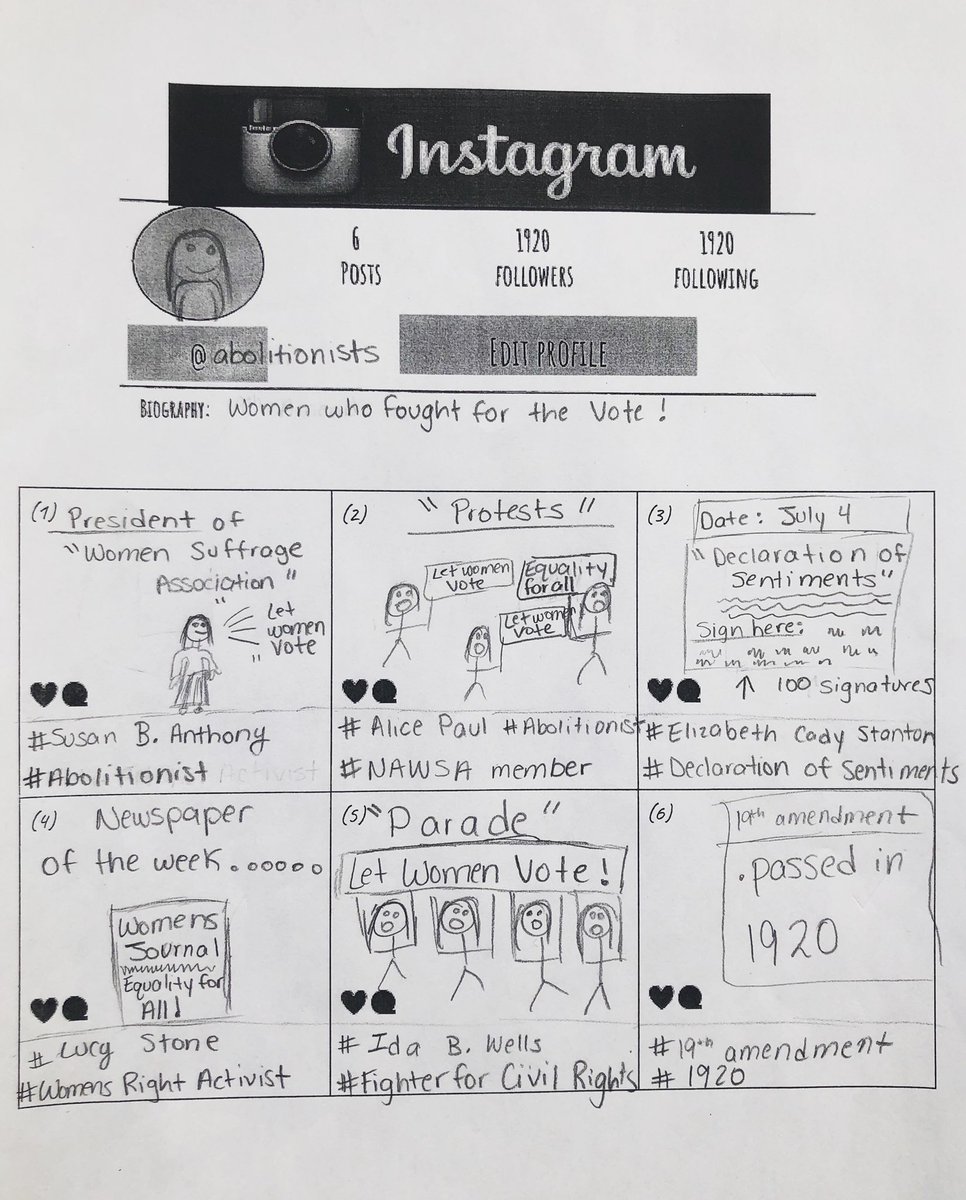 Instagram
6 1920 1920
POSTS FOLLOWERS FOLLOWING
@abolitionists EDIT PROFILE
BIOGRAPHY: Women who fought for the Vote!
(1) President of
"Women Suffrage
Association"
"Let
women
vote"
#Susan B. Anthony
#Abolitionist Activist
(2) "Protests"
Let women
vote
Equality
for all
Let women
vote
#Alice Paul #Abolitionist
#NAWSA member
(3) Date: July 4
"Declaration of
Sentiments"
Sign here:
↑ 100 signatures
#Elizabeth Cady Stanton
#Declaration of Sentiments
(4) Newspaper
of the week..........
Womens
Journal
Equality for
All!
#Lucy Stone
#Womens Right Activist
(5) "Parade"
Let Women Vote!
#Ida B. Wells
#Fighter for Civil Rights
(6) 19th amendment
.passed in
1920
#19th amendment
#1920